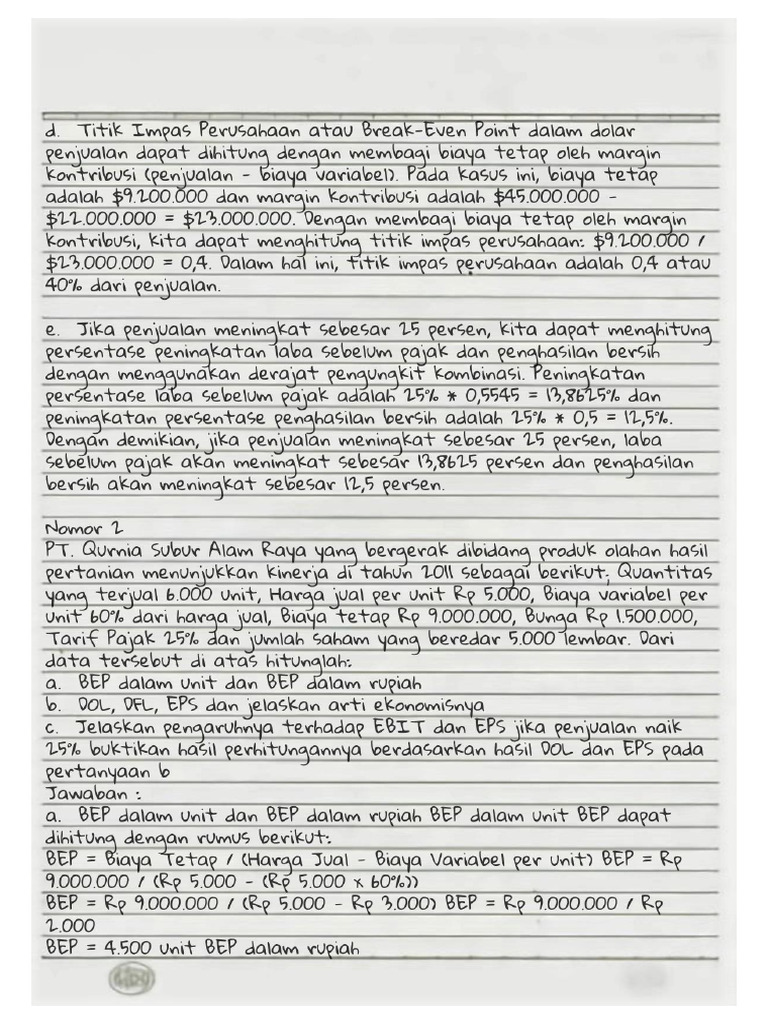 d. Titik Impas Perusahaan atau Break-Even Point dalam dolar
penjualan dapat dihitung dengan membagi biaya tetap oleh margin
kontribusi (penjualan - biaya variabel). Pada kasus ini, biaya tetap
adalah $9.200.000 dan margin kontribusi adalah $45.000.000 -
$22.000.000 = $23.000.000. Dengan membagi biaya tetap oleh margin
kontribusi, kita dapat menghitung titik impas perusahaan: $9.200.000 /
$23.000.000 = 0,4. Dalam hal ini, titik impas perusahaan adalah 0,4 atau
40% dari penjualan.
e. Jika penjualan meningkat sebesar 25 persen, kita dapat menghitung
persentase peningkatan laba sebelum pajak dan penghasilan bersih
dengan menggunakan derajat pengungkit kombinasi. Peningkatan
persentase laba sebelum pajak adalah 25% * 0,5545 = 13,8625% dan
peningkatan persentase penghasilan bersih adalah 25% * 0,5 = 12,5%.
Dengan demikian, jika penjualan meningkat sebesar 25 persen, laba
sebelum pajak akan meningkat sebesar 13,8625 persen dan penghasilan
bersih akan meningkat sebesar 12,5 persen.
Nomor 2
PT. Qurnia Subur Alam Raya yang bergerak dibidang produk olahan hasil
pertanian menunjukkan kinerja di tahun 2011 sebagai berikut; Quantitas
yang terjual 6.000 unit, Harga jual per unit Rp 5.000, Biaya variabel per
unit 60% dari harga jual, Biaya tetap Rp 9.000.000, Bunga Rp 1.500.000,
Tarif Pajak 25% dan jumlah saham yang beredar 5.000 lembar. Dari
data tersebut di atas hitunglah:
a. BEP dalam unit dan BEP dalam rupiah
b. DOL, DFL, EPS dan jelaskan arti ekonomisnya
c. Jelaskan pengaruhnya terhadap EBIT dan EPS jika penjualan naik
25% buktikan hasil perhitungannya berdasarkan hasil DOL dan EPS pada
pertanyaan b
Jawaban :
a. BEP dalam unit dan BEP dalam rupiah BEP dalam unit BEP dapat
dihitung dengan rumus berikut:
BEP = Biaya Tetap / (Harga Jual - Biaya Variabel per unit) BEP = Rp
9.000.000 / (Rp 5.000 - (Rp 5.000 x 60%))
BEP = Rp 9.000.000 / (Rp 5.000 - Rp 3.000) BEP = Rp 9.000.000 / Rp
2.000
BEP = 4.500 unit BEP dalam rupiah